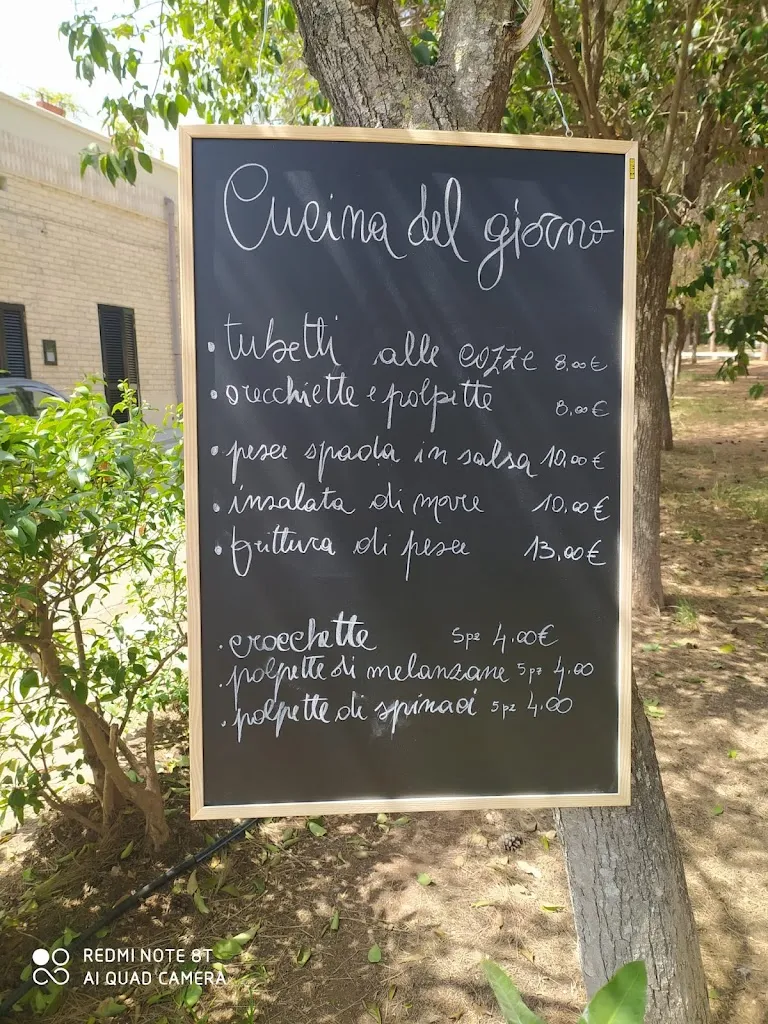 Cucina del giorno
• tubetti alle cozze 8,00€
• orecchiette e polpette 8,00€
• pesce spada in salsa 10,00€
• insalata di mare 10,00€
• frittura di pesce 13,00€
. crocchette 5pz 4.00€
. polpette di melanzane 5pz 4,00
. polpette di spinaci 5pz 4.00
REDMI NOTE 8T
AI QUAD CAMERA